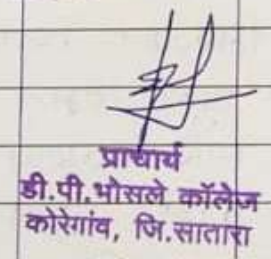 प्राचार्य
डी.पी.भोसले कॉलेज
कोरेगांव, जि.सातारा